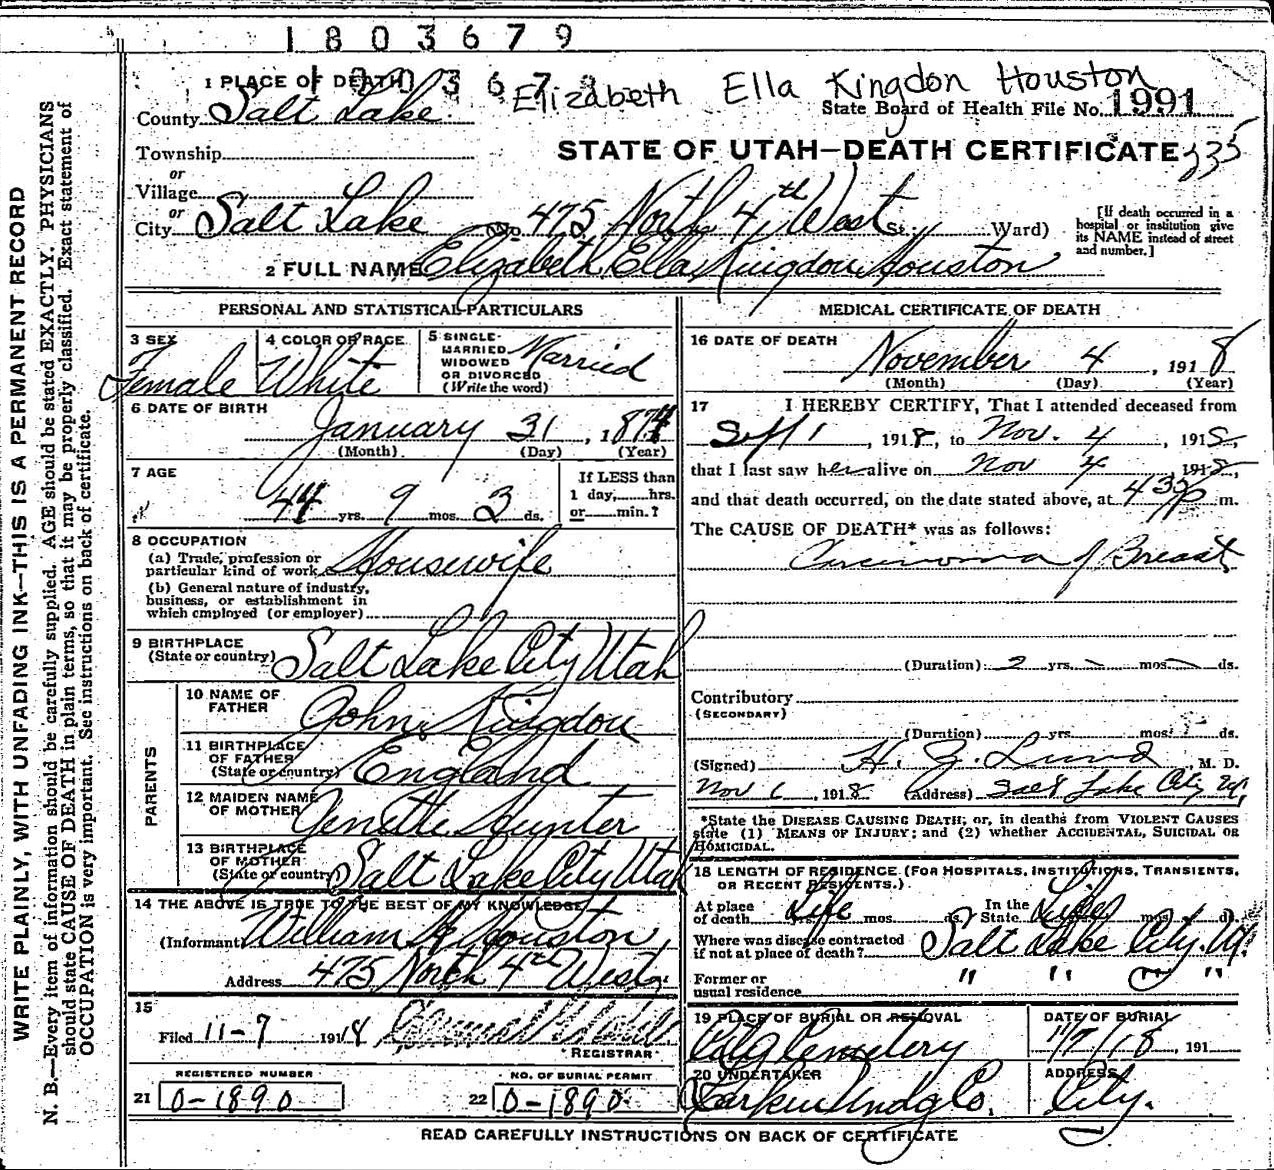 1803679
1 PLACE OF DEATH
Elizabeth Ella Kingdon Houston
County Salt Lake
State Board of Health File No. 1991
Township
STATE OF UTAH—DEATH CERTIFICATE 335
or
Village
or
City Salt Lake (No. 475 North 4th West St.; Ward)
[If death occurred in a hospital or institution give its NAME instead of street and number.]
2 FULL NAME Elizabeth Ella Kingdon Houston
PERSONAL AND STATISTICAL PARTICULARS
3 SEX
Female
4 COLOR OR RACE
White
5 SINGLE
MARRIED
WIDOWED
OR DIVORCED
(Write the word)
Married
6 DATE OF BIRTH
January 31, 1874
(Month) (Day) (Year)
7 AGE
44 yrs. 9 mos. 3 ds.
If LESS than
1 day, hrs.
or min.?
8 OCCUPATION
(a) Trade, profession or
particular kind of work Housewife
(b) General nature of industry,
business, or establishment in
which employed (or employer)
9 BIRTHPLACE
(State or country) Salt Lake City Utah
PARENTS
10 NAME OF
FATHER John Kingdon
11 BIRTHPLACE
OF FATHER
(State or country) England
12 MAIDEN NAME
OF MOTHER Jenette Hunter
13 BIRTHPLACE
OF MOTHER
(State or country) Salt Lake City Utah
14 THE ABOVE IS TRUE TO THE BEST OF MY KNOWLEDGE
(Informant) William H Houston
Address 475 North 4th West
15
Filed 11-7 1918
REGISTRAR
REGISTERED NUMBER
21 0-1890
NO. OF BURIAL PERMIT
22 0-1890
MEDICAL CERTIFICATE OF DEATH
16 DATE OF DEATH
November 4, 1918
(Month) (Day) (Year)
17 I HEREBY CERTIFY, That I attended deceased from
Sept 1, 1918, to Nov. 4, 1918,
that I last saw her alive on Nov 4, 1918,
and that death occurred, on the date stated above, at 435 P m.
The CAUSE OF DEATH* was as follows:
Carcinoma of Breast
(Duration) 2 yrs. - mos. - ds.
Contributory
(SECONDARY)
(Duration) yrs. mos. ds.
(Signed) H. J. Lund, M. D.
Nov 6, 1918 (Address) Salt Lake City Ut.
*State the DISEASE CAUSING DEATH; or, in deaths from VIOLENT CAUSES
state (1) MEANS OF INJURY; and (2) whether ACCIDENTAL, SUICIDAL OR
HOMICIDAL.
18 LENGTH OF RESIDENCE (FOR HOSPITALS, INSTITUTIONS, TRANSIENTS,
OR RECENT RESIDENTS.)
At place
of death Life yrs. mos. ds.
In the
State Life yrs. mos. ds.
Where was disease contracted
if not at place of death? Salt Lake City. Ut.
Former or
usual residence " " " "
19 PLACE OF BURIAL OR REMOVAL
City Cemetery
DATE OF BURIAL
11/7/18, 191
20 UNDERTAKER
Larkin Undg Co.
ADDRESS
City.
READ CAREFULLY INSTRUCTIONS ON BACK OF CERTIFICATE
WRITE PLAINLY, WITH UNFADING INK—THIS IS A PERMANENT RECORD
N. B.—Every item of information should be carefully supplied. AGE should be stated EXACTLY. PHYSICIANS
should state CAUSE OF DEATH in plain terms, so that it may be properly classified. Exact statement of
OCCUPATION is very important. See instructions on back of certificate.